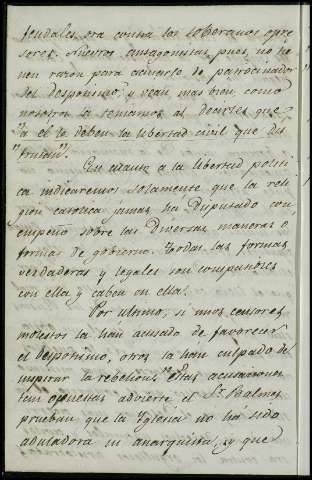 feudales era contra los soberanos opre
sores. Nuestros antagonistas pues, no tie
nen razon para acusarlo de patrocinador
del despotismo; y vean mas bien, como
nosotros la tenemos al decirles que
"a el lo deben la libertad civil que dis
"frutan".
En cuanto a la libertad politi
ca indicaremos solamente que la reli
gion catolica jamas ha disputado con
empeño sobre las diversas maneras o
formas de gobierno. Todas las formas
verdaderas y legales son compatibles
con ella y caben en ella.
Por ultimo, si unos censores
molestos la han acusado de favorecer
el despotismo, otros la han culpado de
inspirar la rebelion. Estas acusaciones
tan opuestas advierte el Sr. Balmes
prueban que la Yglesia no ha sido
aduladora ni anarquista, y que